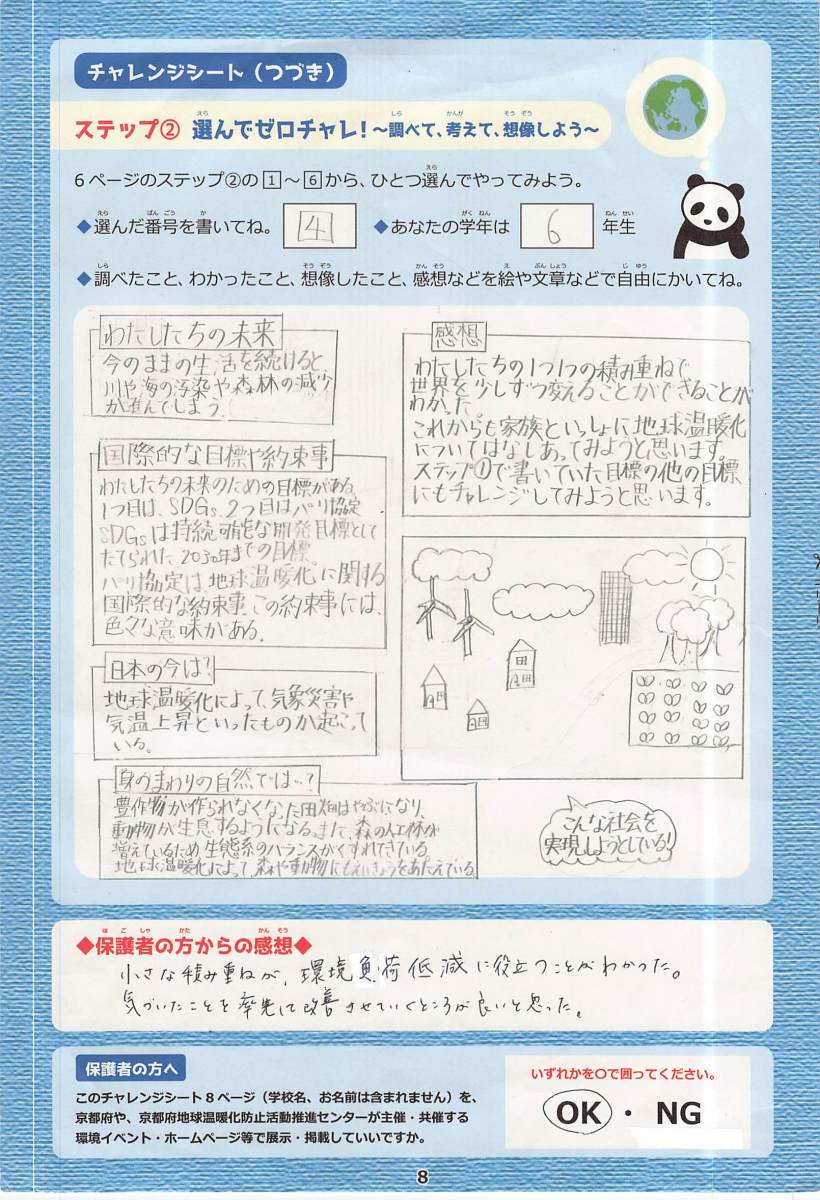 チャレンジシート（つづき）
ステップ② 選んでゼロチャレ！～調べて、考えて、想像しよう～
6ページのステップ②の1～6から、ひとつ選んでやってみよう。
◆選んだ番号を書いてね。 4 ◆あなたの学年は 6 年生
◆調べたこと、わかったこと、想像したこと、感想などを絵や文章などで自由にかいてね。
わたしたちの未来
今のままの生活を続けると、
川や海の汚染や森林の減少
が進んでしまう。
国際的な目標や約束事
わたしたちの未来のための目標がある。
1つ目は、SDGs、2つ目はパリ協定
SDGsは持続可能な開発目標として
たてられた、2030年までの目標。
パリ協定は、地球温暖化に関する
国際的な約束事、この約束事には、
色々な意味がある。
日本の今は？
地球温暖化によって、気象災害や
気温上昇といったものが起こって
いる。
身のまわりの自然では…？
豊作物が作られなくなった田畑はやぶになり、
動物が生息するようになる。また、森の人工林が
増えているため生態系のバランスがくずれてきている。
地球温暖化によって、森や動物にもえいきょうをあたえている。
感想
わたしたちの1つ1つの積み重ねで
世界を少しずつ変えることができることが
わかった。
これからも家族といっしょに地球温暖化
についてはなしあってみようと思います。
ステップ①で書いていた目標の他の目標
にもチャレンジしてみようと思います。
こんな社会を
実現しようとしている！
◆保護者の方からの感想◆
小さな積み重ねが、環境負荷低減に役立つことがわかった。
気づいたことを率先して改善させていくところが良いと思った。
保護者の方へ
このチャレンジシート8ページ（学校名、お名前は含まれません）を、
京都府や、京都府地球温暖化防止活動推進センターが主催・共催する
環境イベント・ホームページ等で展示・掲載していいですか。
いずれかを○で囲ってください。
OK ・ NG
8